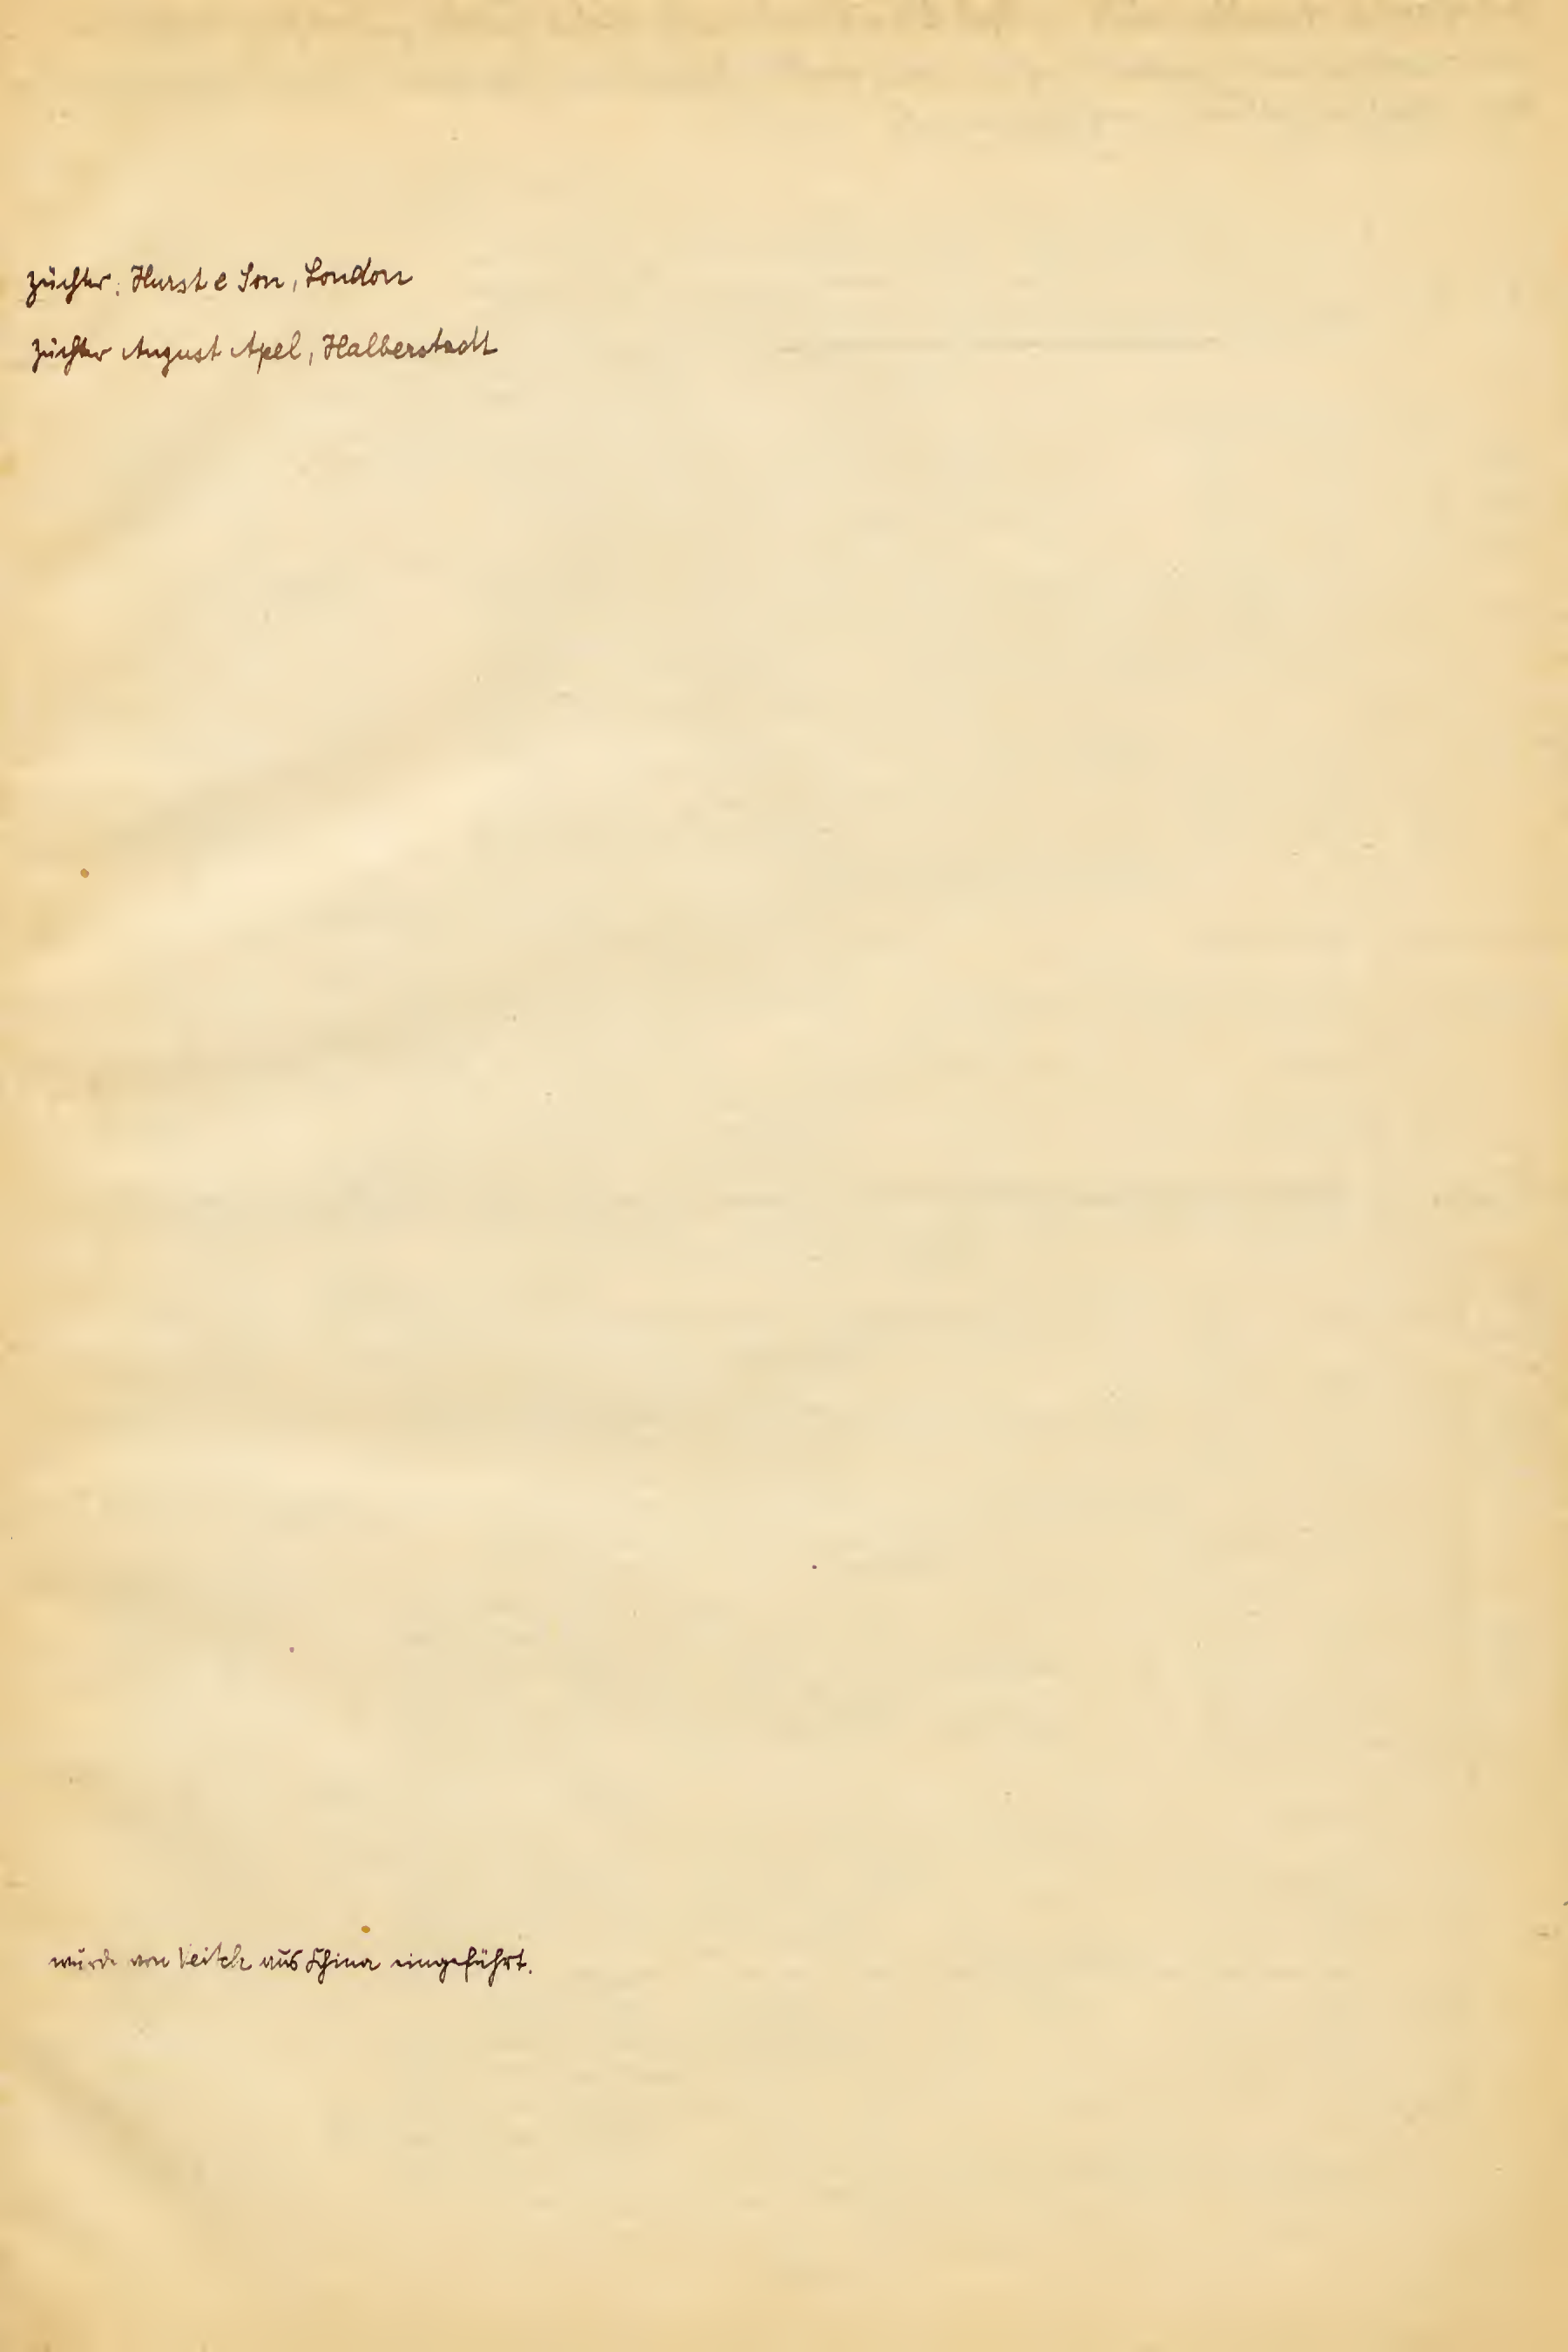 Züchter: Hurst & Son, London
Züchter August Apel, Halberstadt
wurde von Veitch aus China eingeführt.